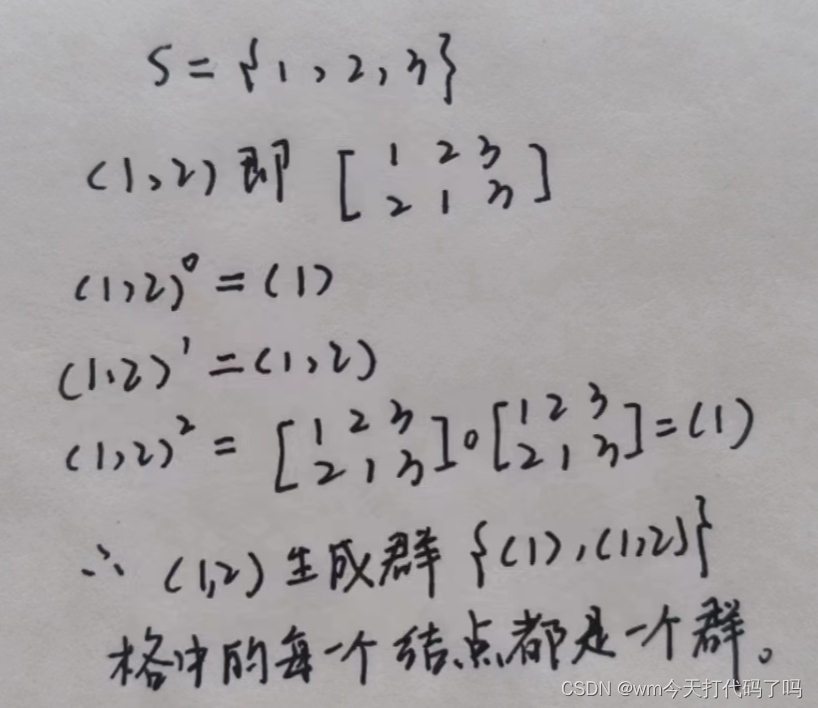 S = {1, 2, 3}
(1,2) 即 [1 2 3
2 1 3]
(1,2)⁰ = (1)
(1,2)¹ = (1,2)
(1,2)² = [1 2 3
2 1 3]∘[1 2 3
2 1 3] = (1)
∴ (1,2) 生成群 {(1),(1,2)}
格中的每一个结点都是一个群。
CSDN @wm今天打代码了吗